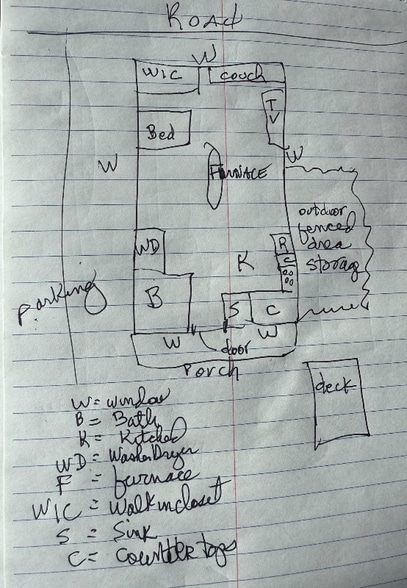 ROAD
W
WIC
couch
TV
Bed
W
W
FURNACE
outdoor
fenced
area
storage
WD
R
K
C
parking
B
S
C
W
W
door
Porch
deck
W = window
B = Bath
K = Kitchen
WD = Washer Dryer
F = furnace
WIC = Walk in closet
S = Sink
C = Counter tops